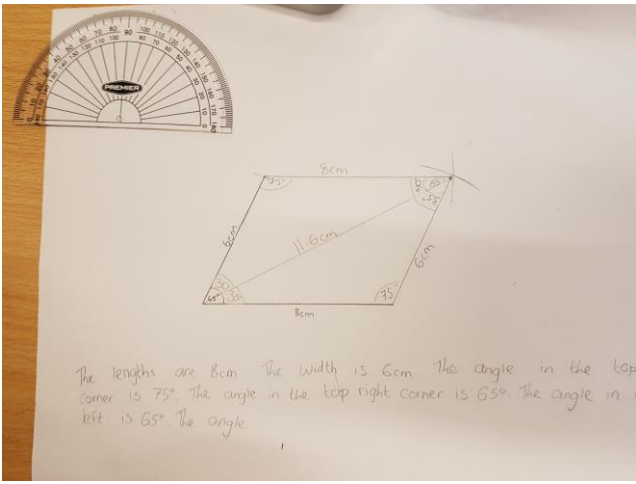 PREMIER
8cm
75°
65°
6cm
11.6cm
6cm
30
35
65°
75°
8cm
The lengths are 8cm. The width is 6cm. The angle in the top
corner is 75°. The angle in the top right corner is 65°. The angle in
left is 65°. The angle